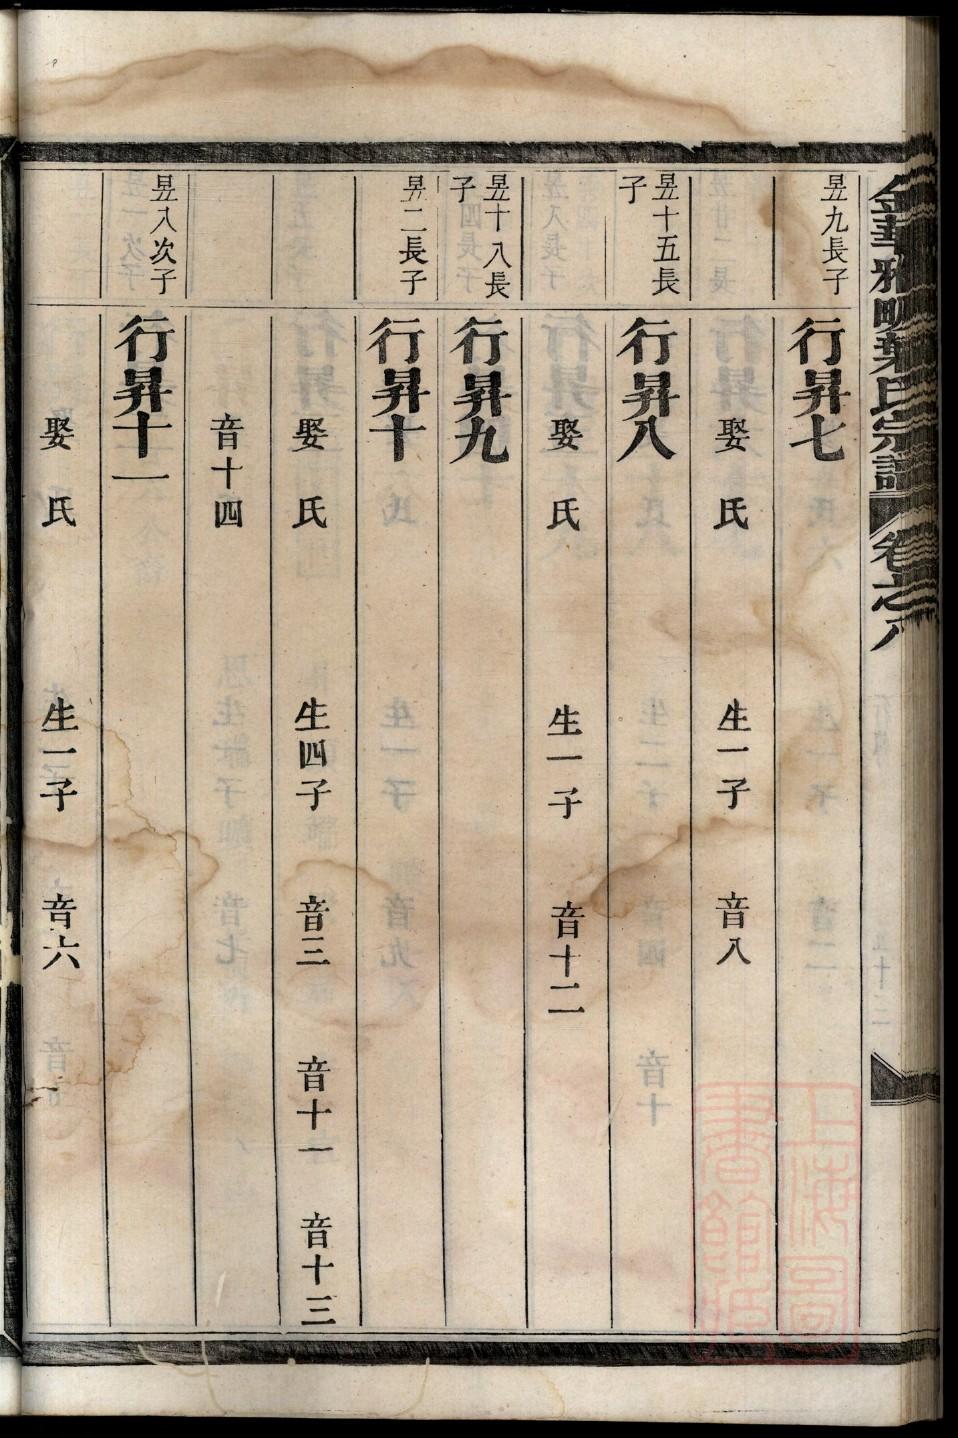 金華雅畈葉氏宗譜 卷之八
昱九長子
行昇七
娶 氏 生一子 音八
昱十五長子
行昇八
娶 氏 生一子 音十二
昱十八長子
行昇九
昱二長子
行昇十
娶 氏 生四子 音三 音十一 音十三
音十四
昱八次子
行昇十一
娶 氏 生一子 音六
上海圖書館藏